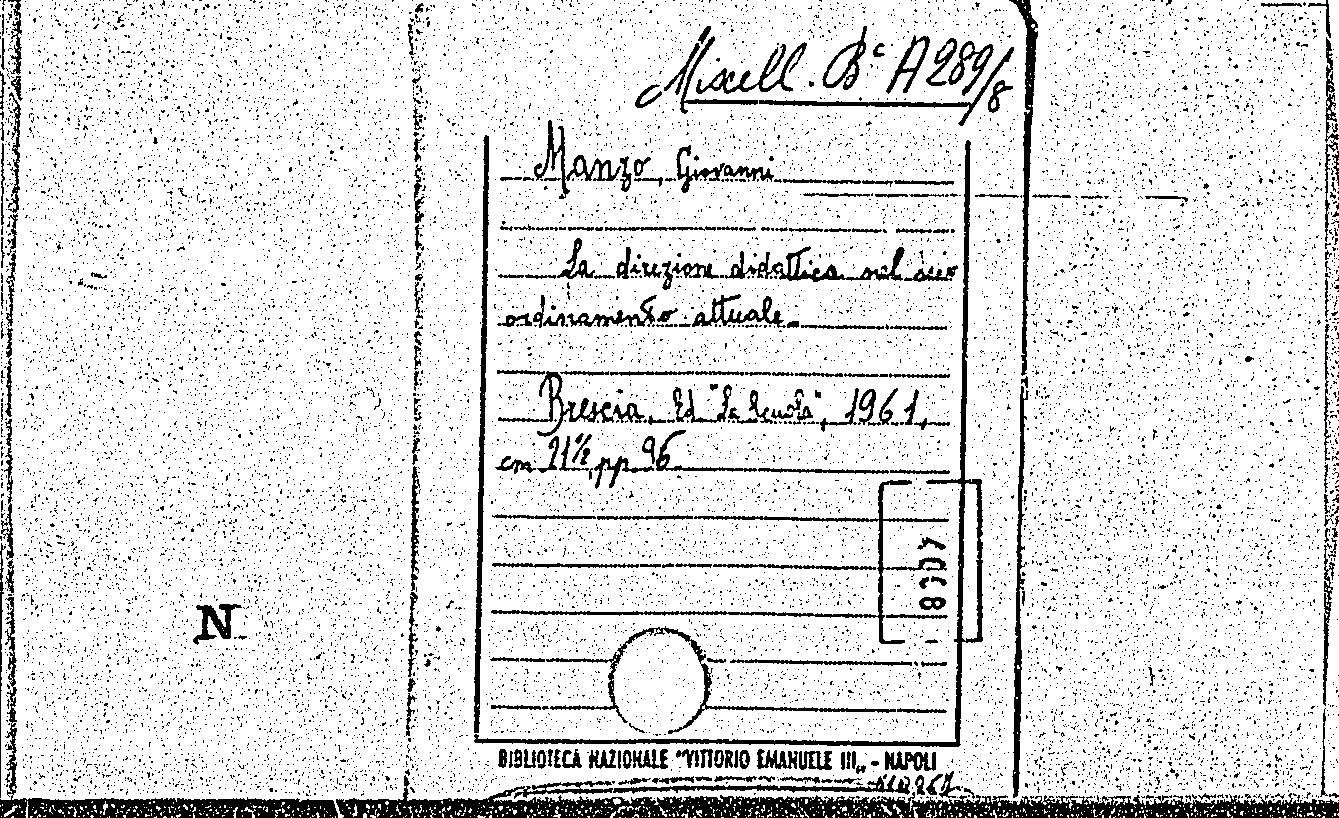 Miscell. Bc A 289/8
Manzo, Giovanni
La direzione didattica nel suo
ordinamento attuale.
Brescia, Ed "La Scuola", 1961,
cm 21½, pp. 96
N
BIBLIOTECA NAZIONALE "VITTORIO EMANUELE III„ - NAPOLI